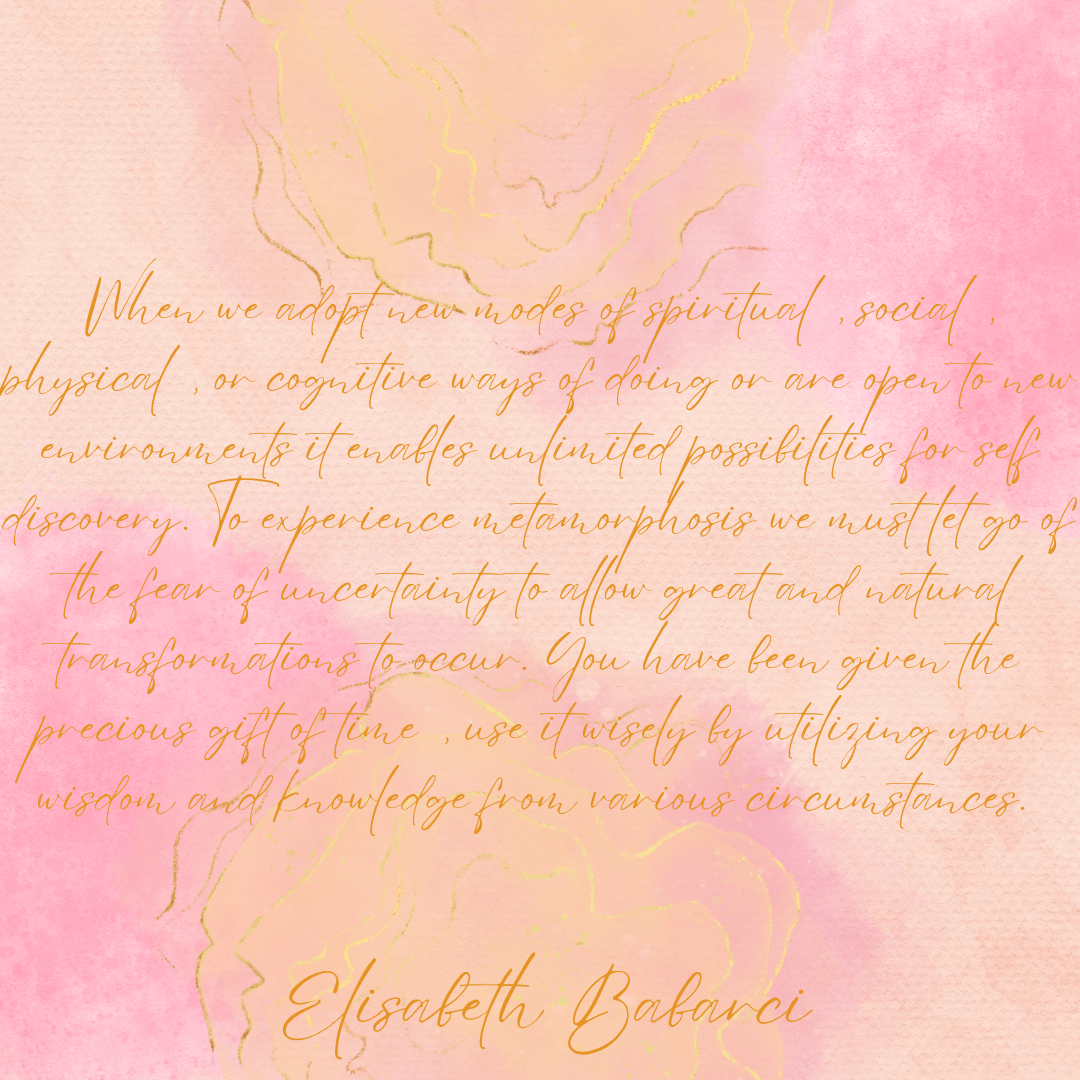 When we adopt new modes of spiritual , social ,
physical , or cognitive ways of doing or are open to new
environments it enables unlimited possibilities for self
discovery. To experience metamorphosis we must let go of
the fear of uncertainty to allow great and natural
transformations to occur. You have been given the
precious gift of time , use it wisely by utilizing your
wisdom and knowledge from various circumstances.
Elisabeth Babarci